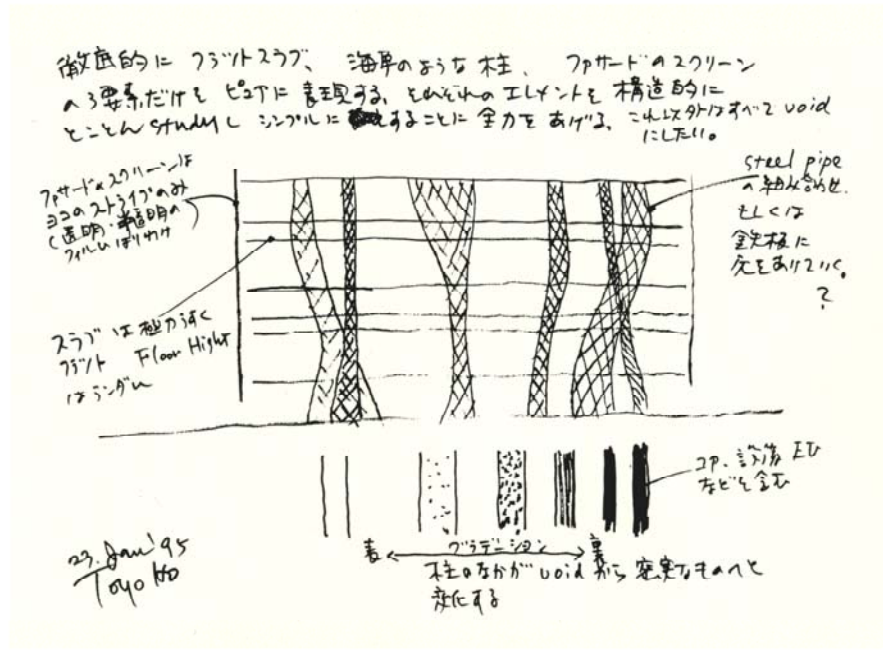 徹底的に フラットスラブ、 海草のような柱、 ファサードのスクリーン
の3要素だけを ピュアに表現する、それぞれのエレメントを 構造的に
とことん studyし シンプルに することに 全力をあげる、これ以外はすべて void
にしたい。
ファサードのスクリーンは
ヨコのストライプのみ
(透明・半透明の
フィルムはりわけ
スラブは極力うすく
フラット Floor Hight
はランダム
steel pipe
の組み合わせ.
もしくは
鉄板に
穴をあけていく。
?
コア、設備 EV
などを含む
表 グラデーション 裏
柱のなかが void から 充実なものへと
変化する
23. Jan '95
Toyo Ito